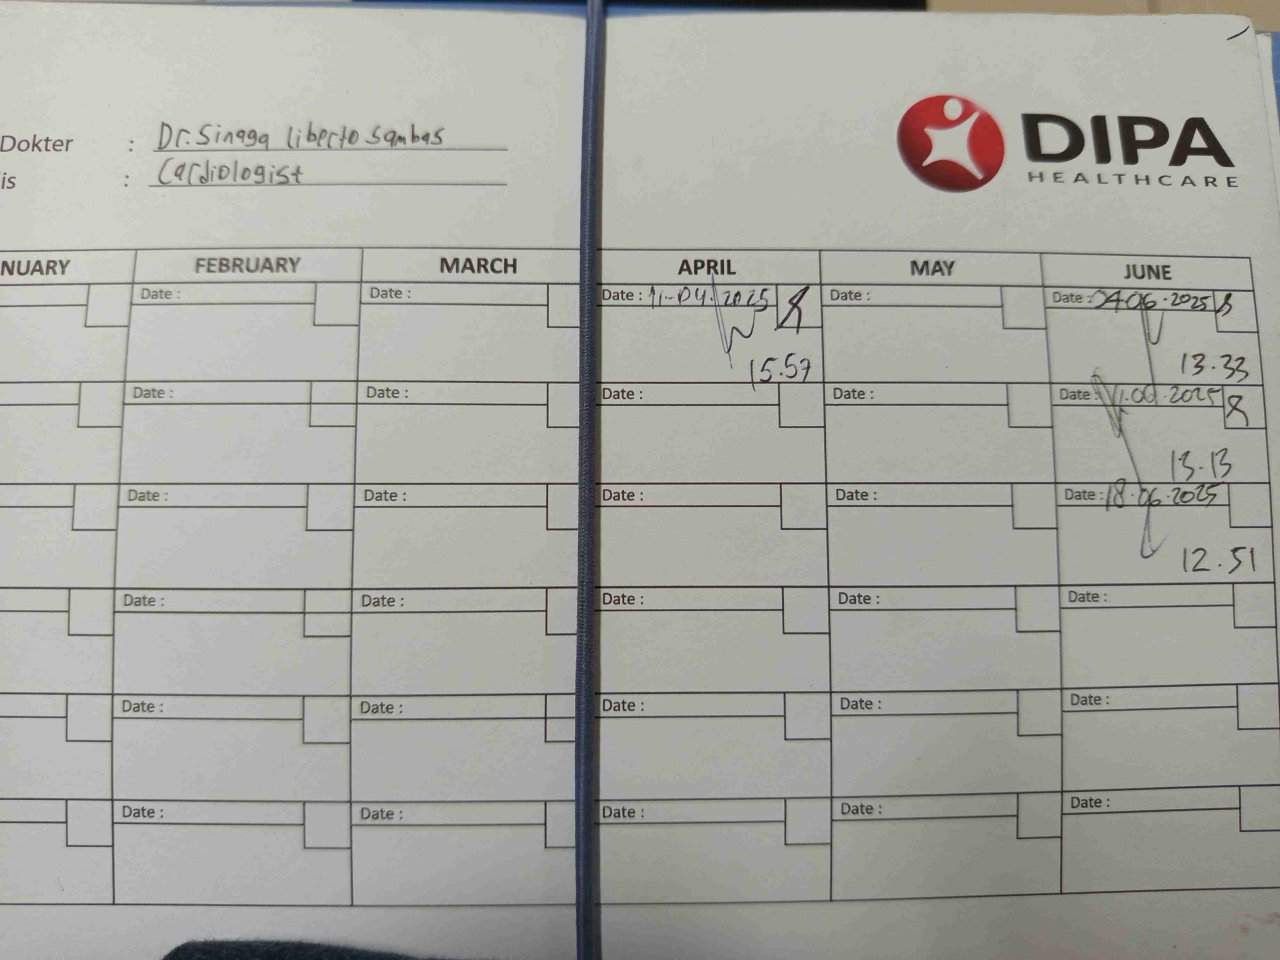 Dokter : Dr. Sinaga Liberto Sambas
is : Cardiologist
DIPA
HEALTHCARE
NUARY FEBRUARY MARCH APRIL MAY JUNE
Date : Date : Date : 11-04-2025 Date : Date : 04.06.2025
15.57 13.33
Date : Date : Date : Date : Date : 11.06.2025
13.13
Date : Date : Date : Date : Date : 18.06.2025
12.51
Date : Date : Date : Date : Date :
Date : Date : Date : Date : Date :
Date : Date : Date : Date : Date :